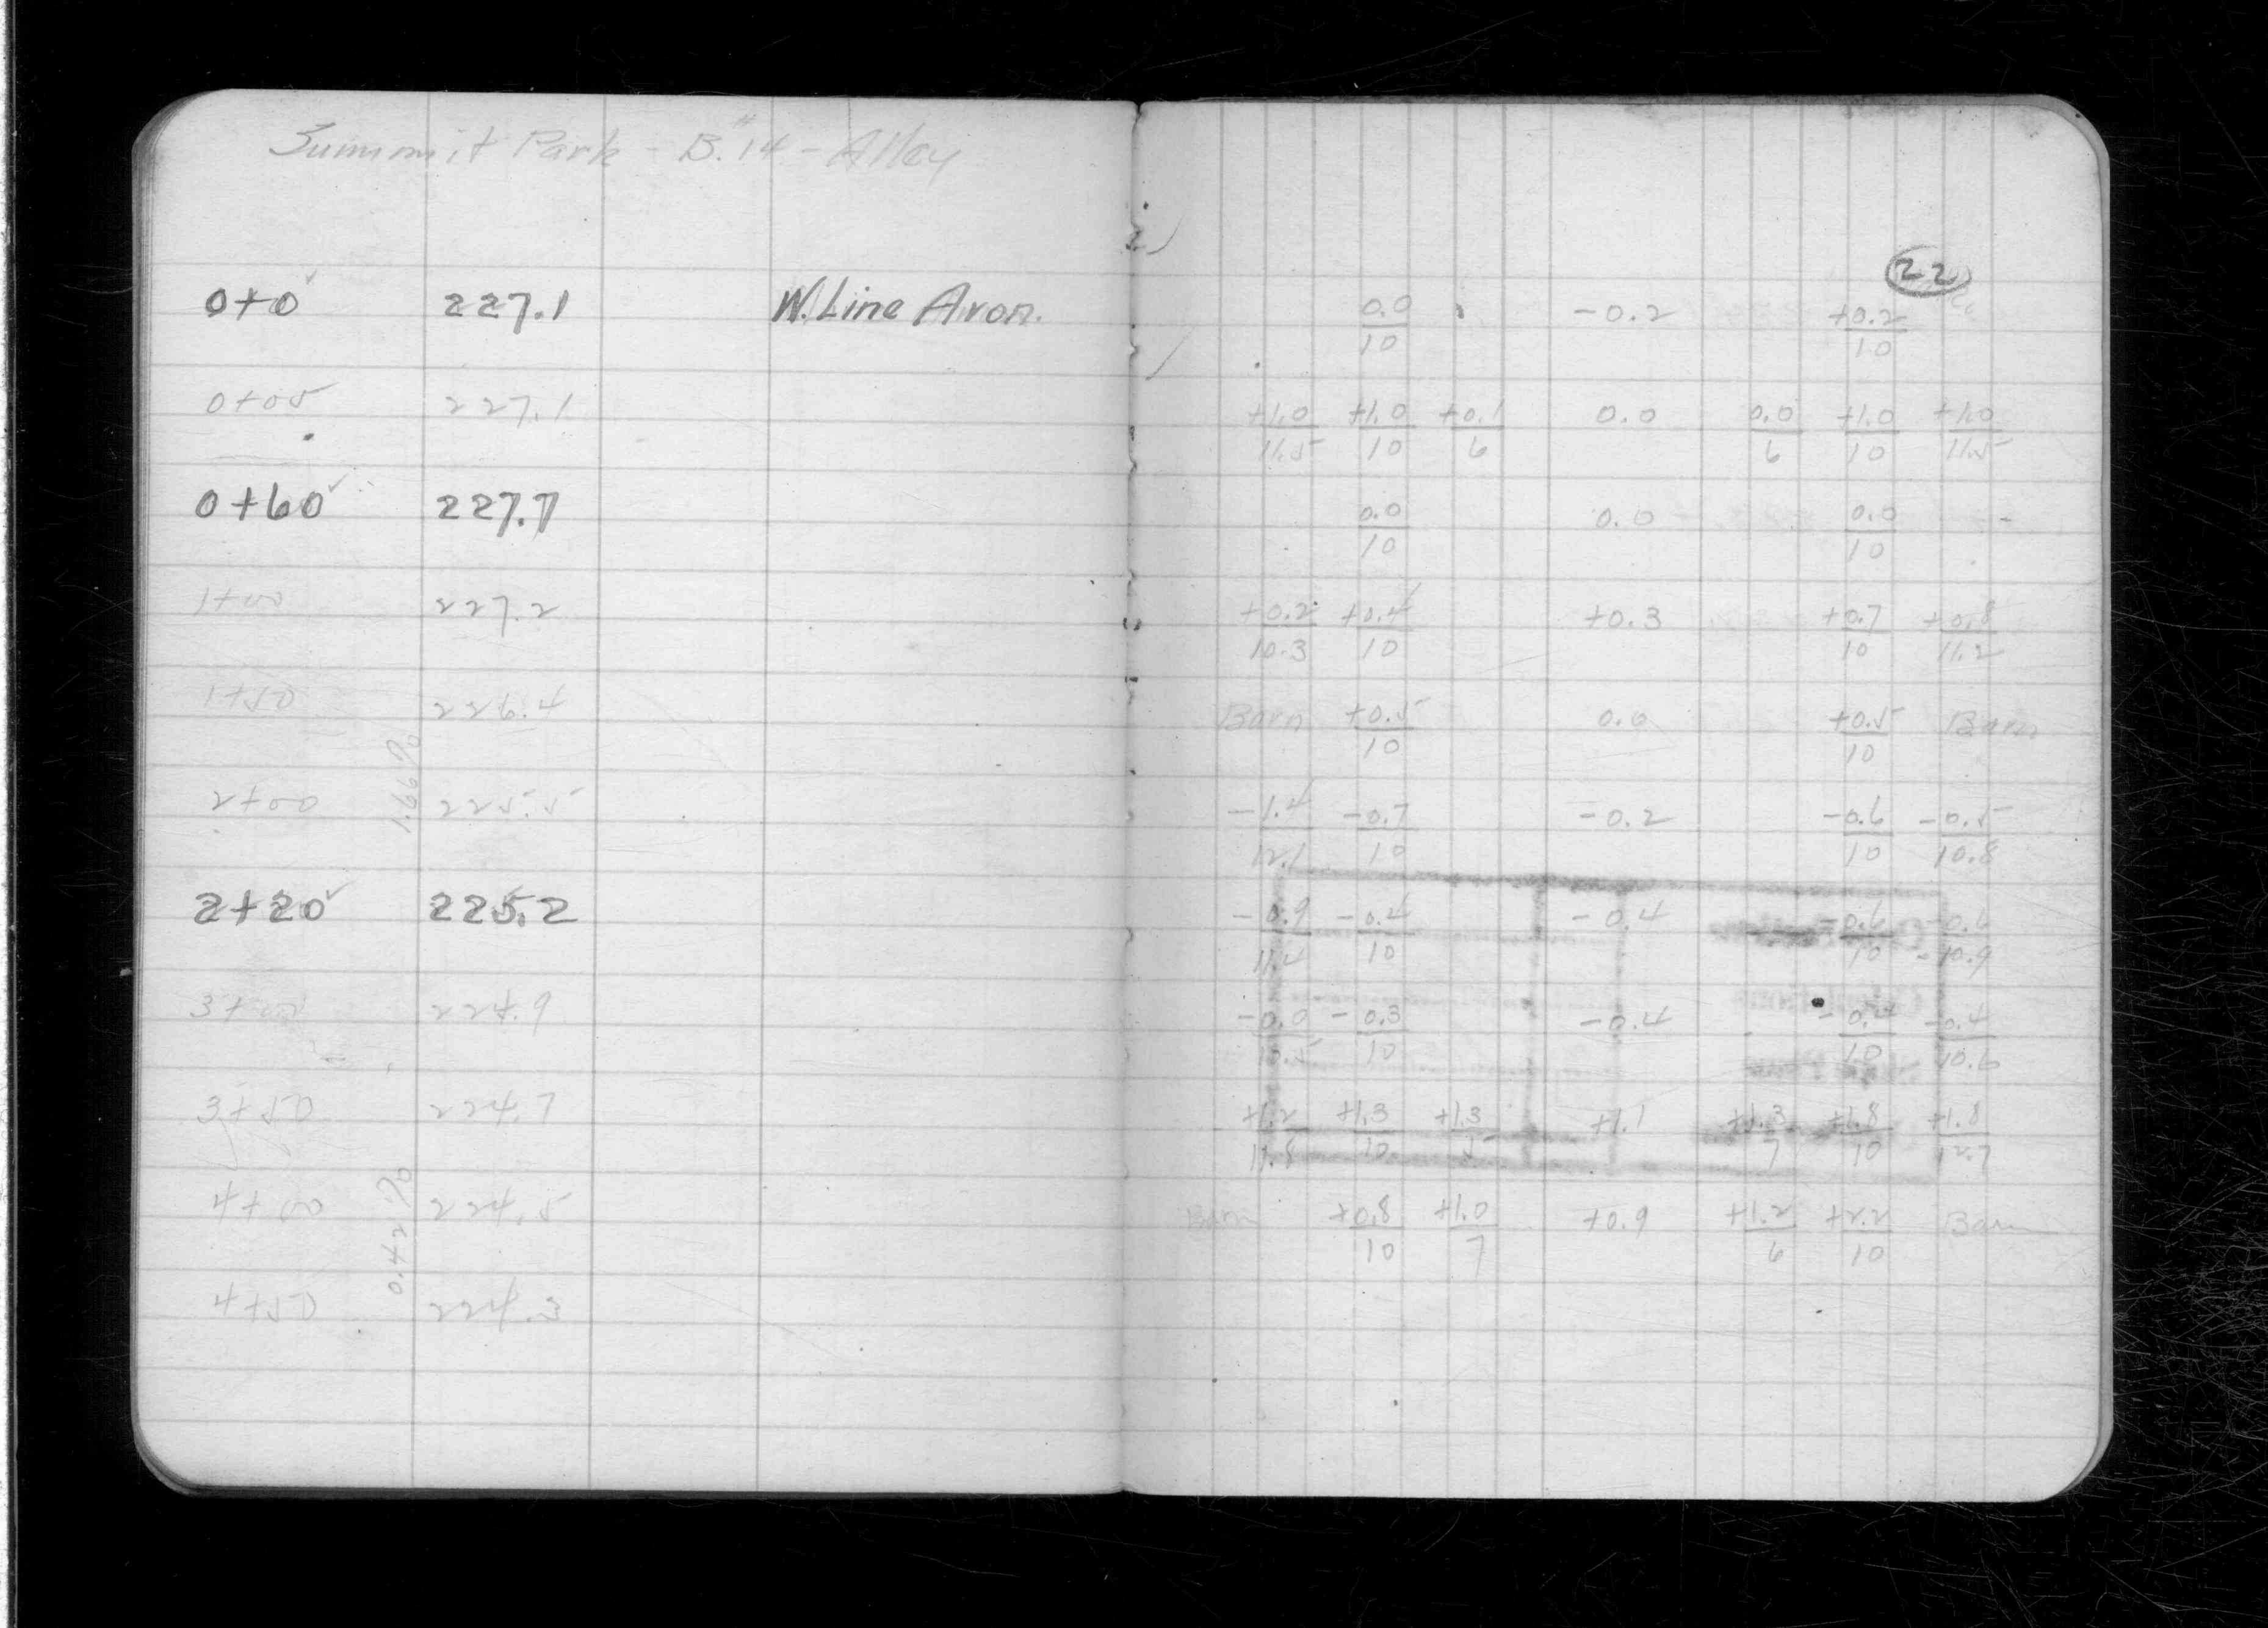 Summit Park - B.#14 - Alley
22
0+0 227.1 W. Line Avon. 0.0/10 -0.2 +0.2/10
0+05 227.1 +1.0/11.5 +1.0/10 +0.1/6 0.0 0.0/6 +1.0/10 +1.0/11.5
0+60 227.7 0.0/10 0.0 0.0/10
1+00 227.2 +0.2/10.3 +0.4/10 +0.3 +0.7/10 +0.8/11.2
1+50 226.4 Barn +0.5/10 0.0 +0.5/10 Barn
1.66%
2+00 225.5 -1.4/12.1 -0.7/10 -0.2 -0.6/10 -0.5/10.8
2+20 225.2 -0.9/11.4 -0.4/10 -0.4 -0.6/10 -0.6/10.9
3+00 224.9 -0.0/10.5 -0.3/10 -0.4 -0.4/10 -0.4/10.6
3+50 224.7 +1.2/11.8 +1.3/10 +1.3/5 +1.1 +1.3/7 +1.8/10 +1.8/12.7
4+00 224.5 Barn +0.8/10 +1.0/7 +0.9 +1.2/6 +2.2/10 Barn
0.42%
4+50 224.3